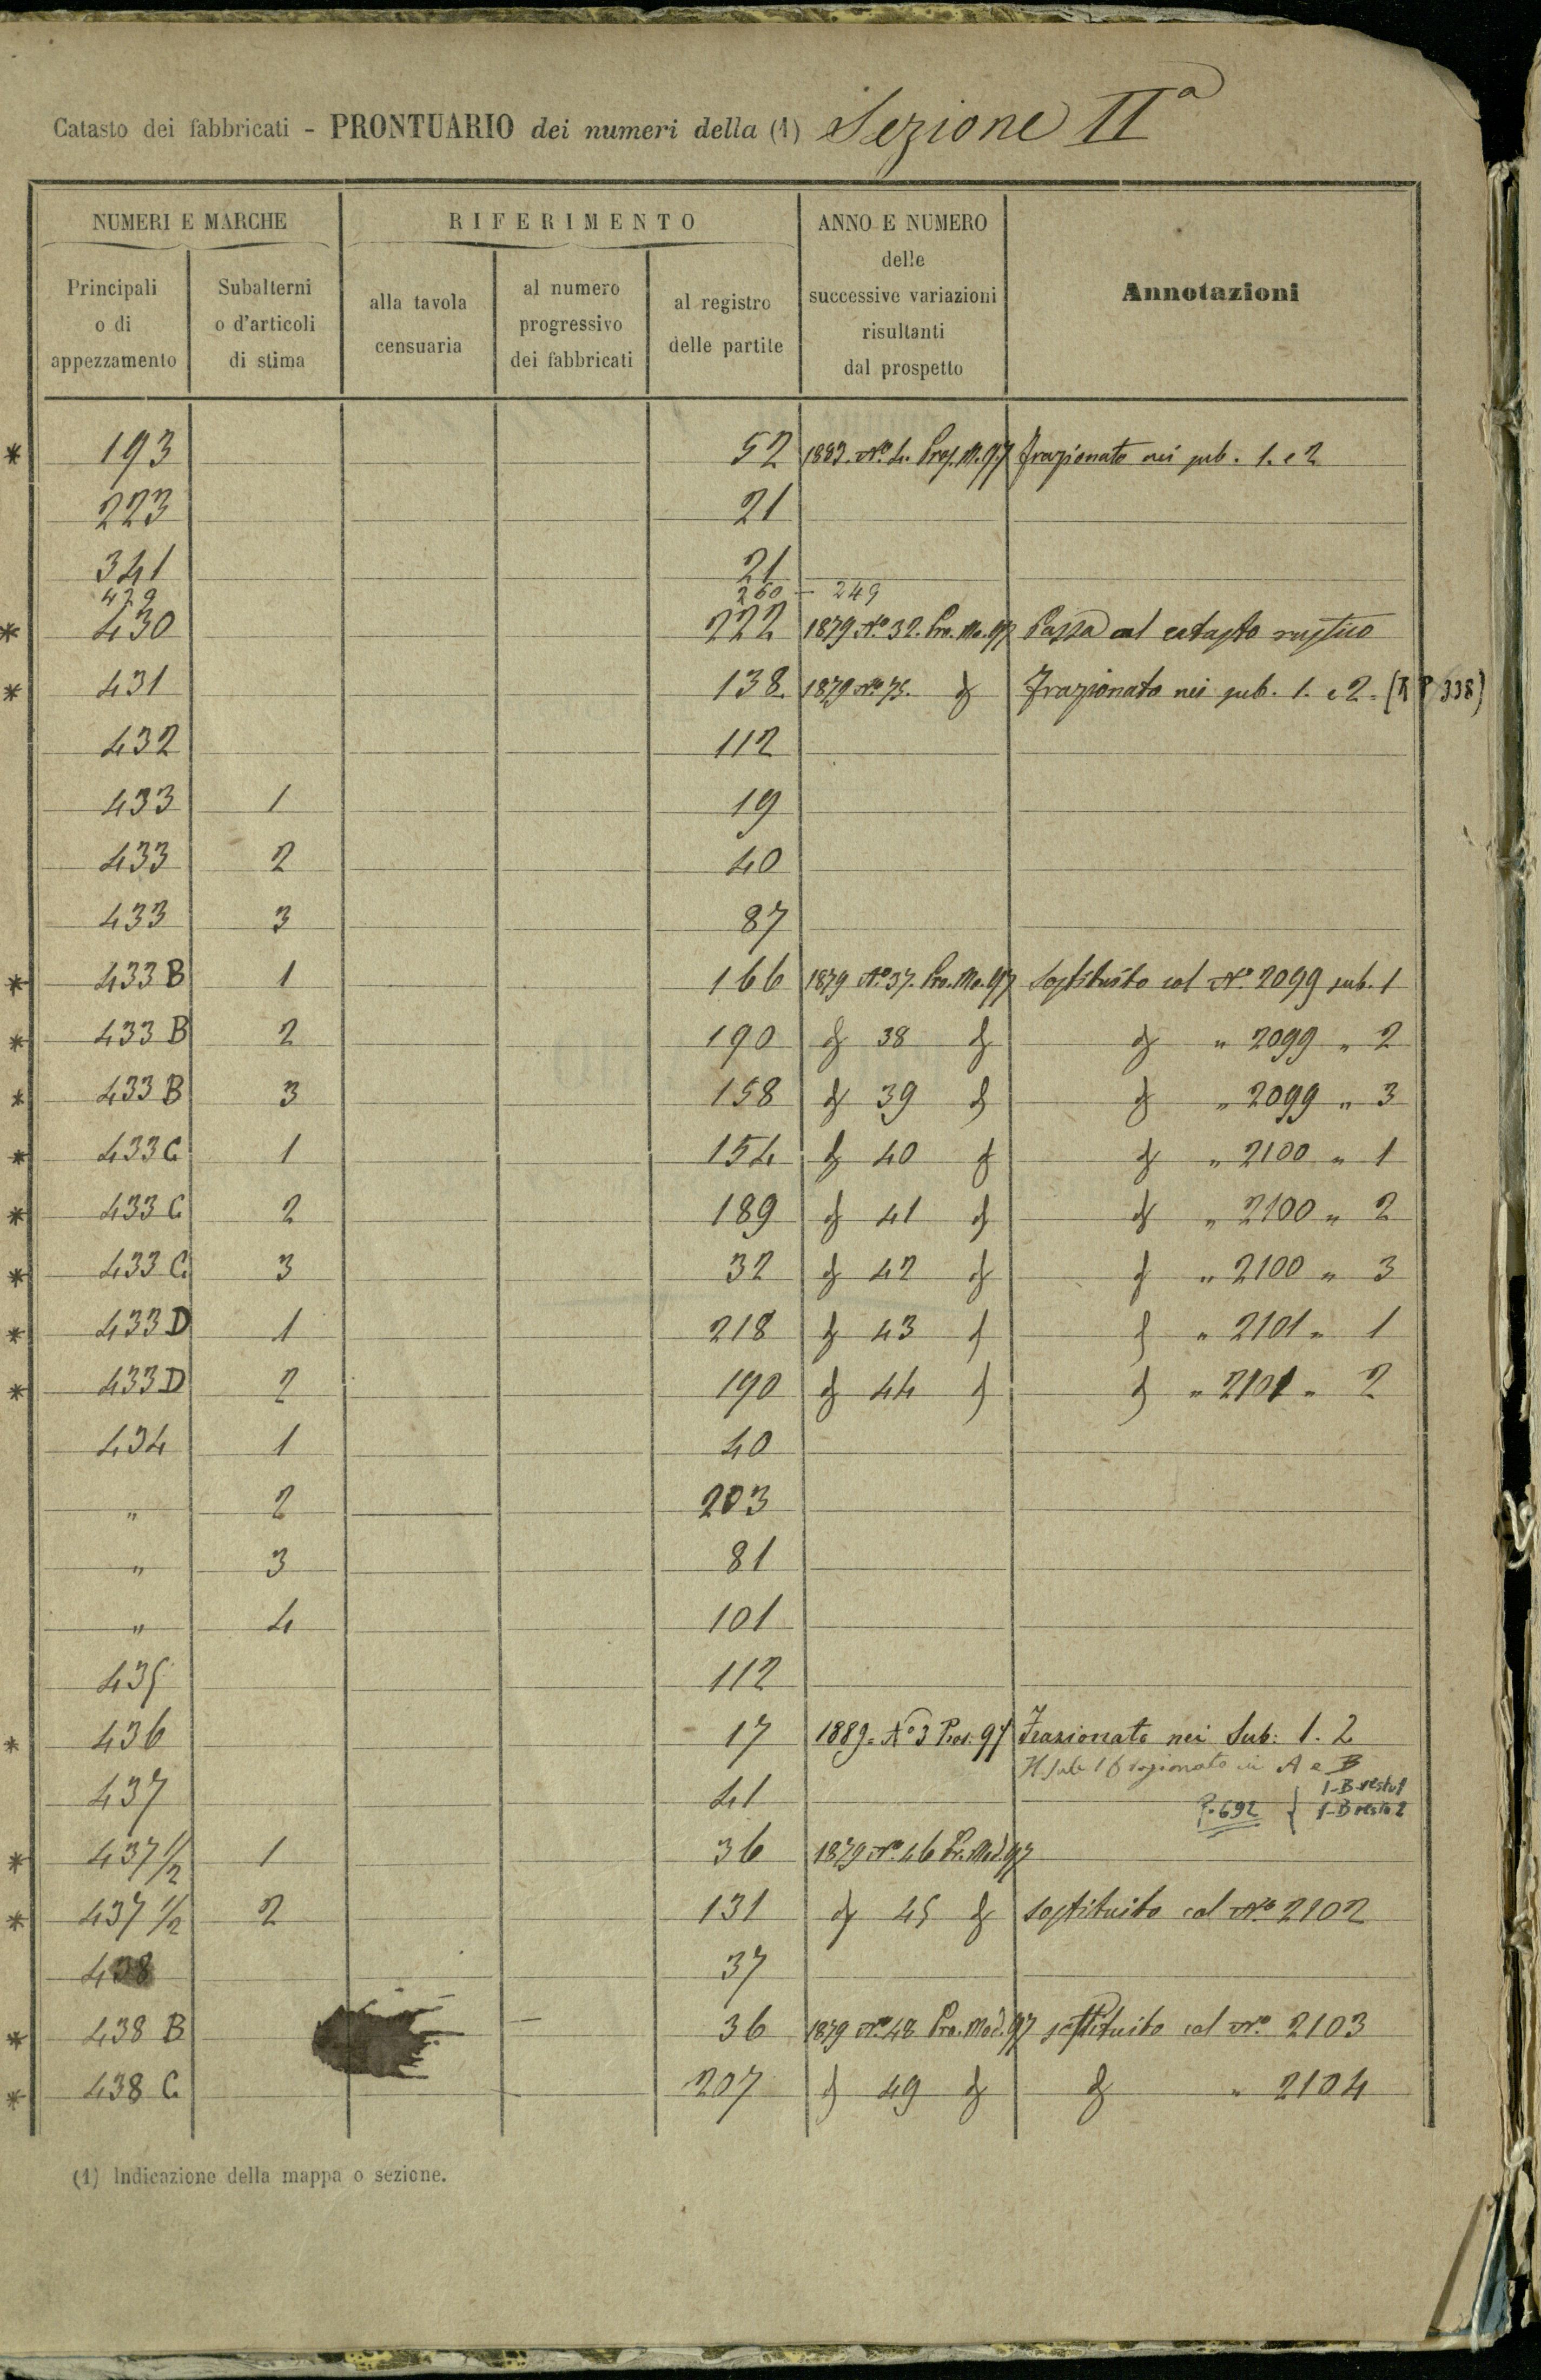 Catasto dei fabbricati - PRONTUARIO dei numeri della (1) Sezione IIa
NUMERI E MARCHE
RIFERIMENTO
ANNO E NUMERO
delle
successive variazioni
risultanti
dal prospetto
Annotazioni
Principali
o di
appezzamento
Subalterni
o d'articoli
di stima
alla tavola
censuaria
al numero
progressivo
dei fabbricati
al registro
delle partite
* 193 52 1883. No. 4. Pros. M. 97 frazionato nei sub. 1. e 2
223 21
341 21
429 260 - 249
* 430 222 1879 No 32. Pro. Mo. 97 Passa al catasto rustico
* 431 138 1879 No 75. " Frazionato nei sub. 1. e 2. (R P 338)
432 112
433 1 19
433 2 40
433 3 87
* 433 B 1 166 1879 No 37. Pro. Mo. 97 sostituito col No. 2099 sub. 1
* 433 B 2 190 " 38 " " " 2099 " 2
* 433 B 3 158 " 39 " " " 2099 " 3
* 433 C 1 154 " 40 " " " 2100 " 1
* 433 C 2 189 " 41 " " " 2100 " 2
* 433 C 3 32 " 42 " " " 2100 " 3
* 433 D 1 218 " 43 " " " 2101 " 1
* 433 D 2 190 " 44 " " " 2101 " 2
434 1 40
" 2 203
" 3 81
" 4 101
435 112
* 436 17 1889. No 3 Pros. 97 Frazionato nei Sub: 1. 2
Il sub 1 frazionato in A e B
437 41
P. 692 { 1-B resto 1
1-B resto 2
* 437 1/2 1 36 1879 No. 46 Pr. Mod. 97
* 437 1/2 2 131 " 45 " sostituito col No 2102
438 37
* 438 B 36 1879 No. 48 Pro. Mod. 97 sostituito col No. 2103
* 438 C 207 " 49 " " " 2104
(1) Indicazione della mappa o sezione.